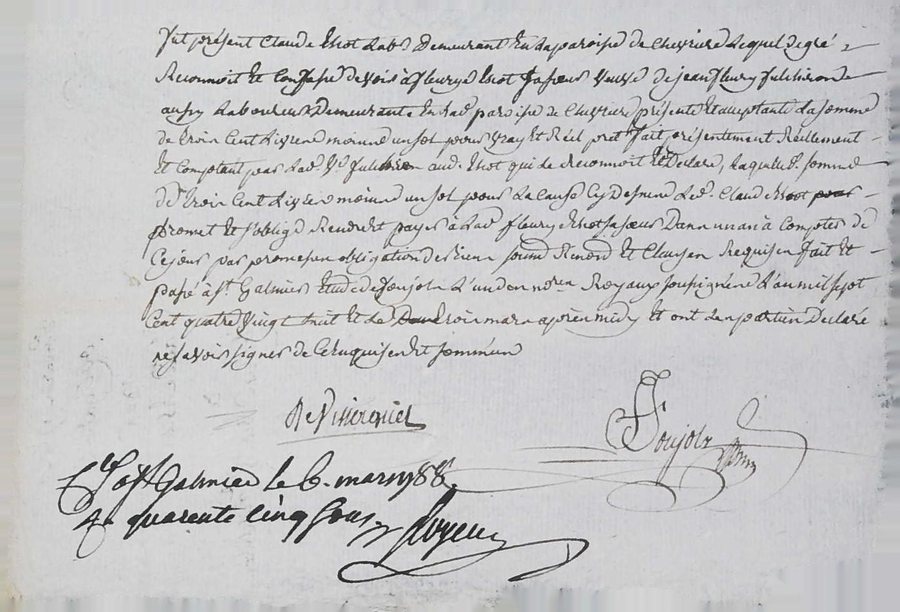 fut présent Claude Thiot Lab^r Demeurant En la paroisse de Chevriere Lequel de gré
Reconnoit Et Confesse devoir à fleurye Thiot sa soeur veuve de jean fleury fulchiron
aussy Laboureur Demeurante En lad^e paroisse de Chevriere présente Et aceptante La somme
de trois Cent Livres moins un sol pour vray Et Réel pret fait présentement Réellement
Et Comptant par lad^e V^e fulchiron aud^t Thiot qui le Reconnoit Et Declare, laquelle d^e somme
de trois Cent Livres moins un sol pour La cause Cy Dessus Led^t Claude Thiot
promet Et s'oblige Rendre Et payer à lad^e fleurye Thiot sa soeur Dans un an à Compter de
Ce jour par promesses obligation de Biens soumis Renon^d Et Clauses Requises fait Et
passé à S^t Galmier Etude de Poujols L'un des no^res Royaux soussignés L'an mil sept
Cent quatre vingt huit Et Le trois mars apres midy Et ont Les parties Declaré
ne savoir signer de Ce Enquises Et sommées
C^lé à S^t Galmier le 6. mars 1788.
R quarente Cinq sous